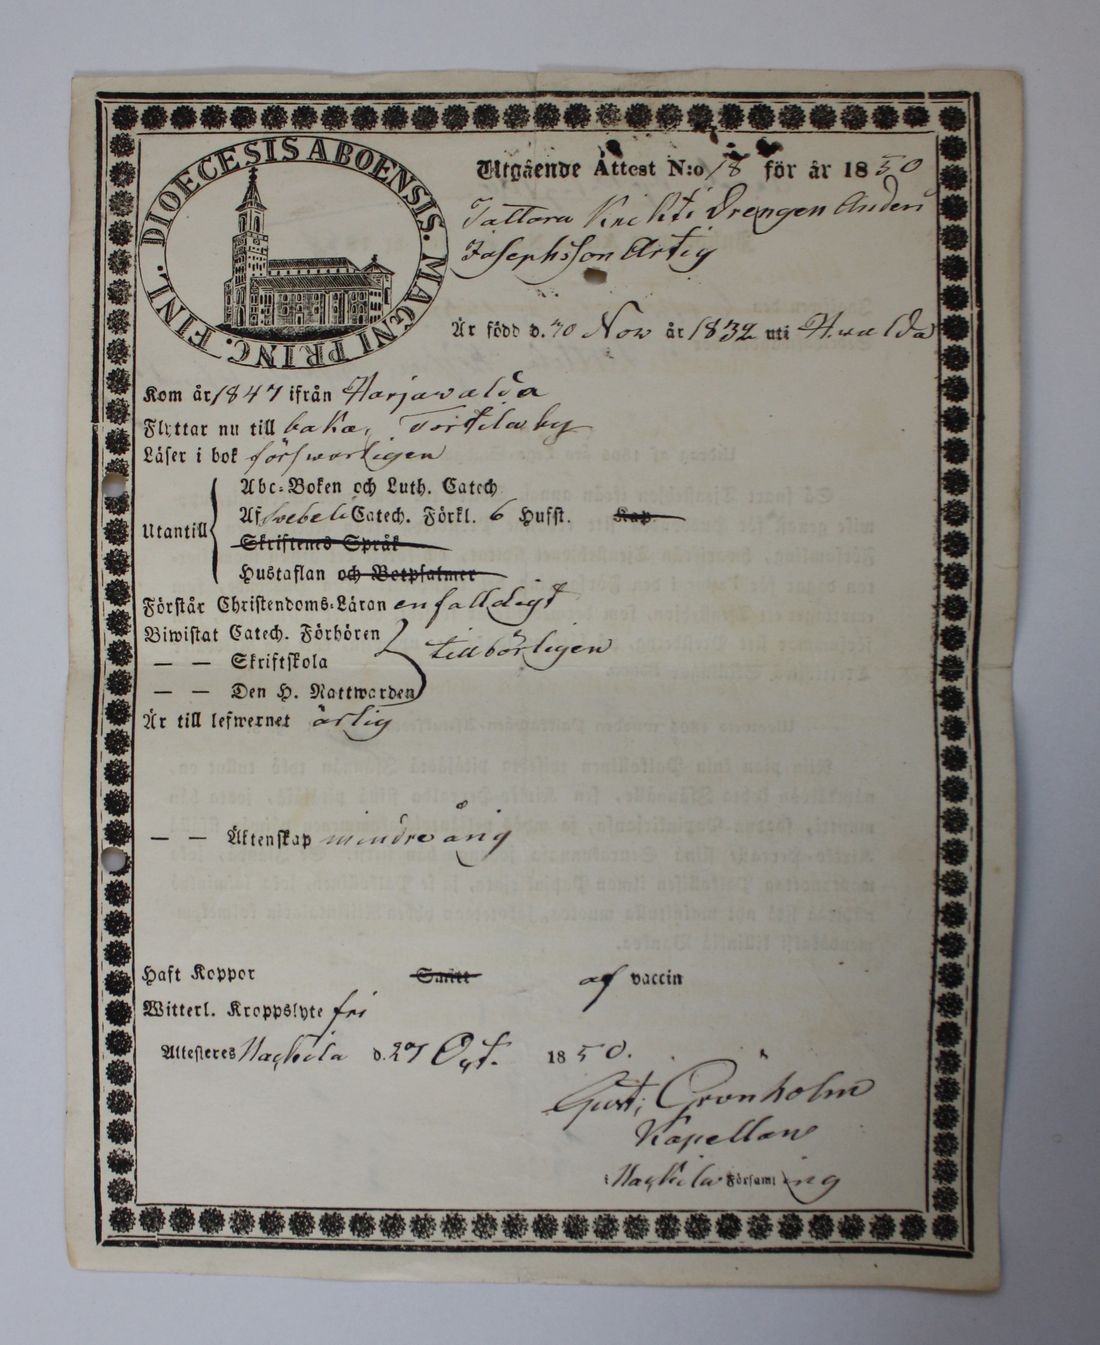 DIOECESIS ABOENSIS. MAGNI PRINC. FINL.
Utgående Attest N:o 18 för år 1850
Knekti Drengen Anders
Josephsson Artig
Är född d. 30 Nov år 1832 uti
Kom år 1847 ifrån Harjavalda
Flyttar nu till baka, Torttila by
Läser i bok försvarligen
Utantill
Abc-Boken och Luth. Catech
Af Svebeli Catech. Förkl. 6 Hufst. Kap
Skriftenes Språk
Hustaflan och Botpsalmer
Förstår Christendoms-Läran enfalldigt
Biwistat Catech. Förhören
— — Skriftskola
tillbörligen
— — Den H. Nattwarden
Är till lefwernet ärlig
— — Äktenskap mindre ång
Haft Koppor Smitt af vaccin
Witterl. Kroppslyte fri
Attesteras Nackila d. 27 Oct. 1850.
Gust. Grönholm
Kapellan
i Nackila Församling